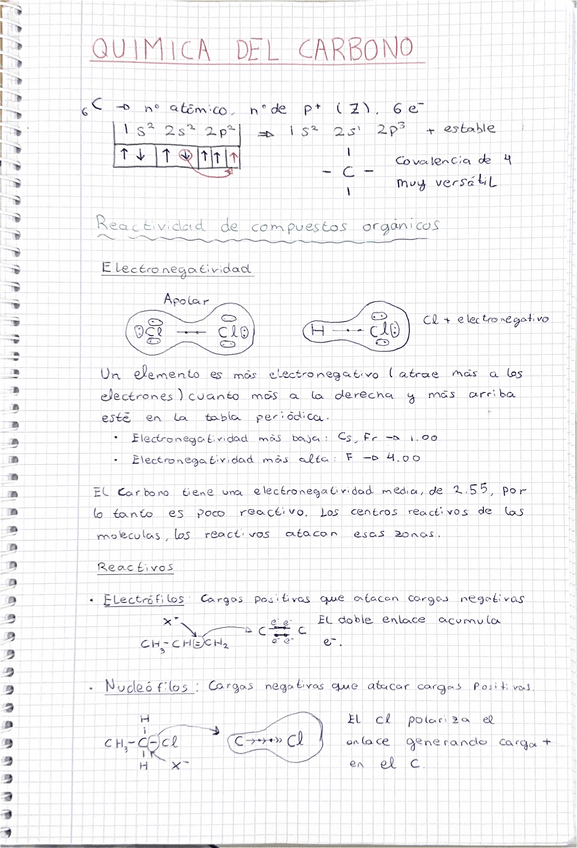 QUIMICA DEL CARBONO
₆C → nº atómico, nº de p⁺ (Z). 6 e⁻
1s² 2s² 2p² ⇒ 1s² 2s¹ 2p³ + estable
↑↓ ↑↓ ↑↑↑
- C - Covalencia de 4
muy versátil
Reactividad de compuestos orgánicos
Electronegatividad
Apolar
Cl — Cl H — Cl Cl + electronegativo
Un elemento es más electronegativo (atrae más a los
electrones) cuanto más a la derecha y más arriba
esté en la tabla periódica.
· Electronegatividad más baja: Cs, Fr → 1.00
· Electronegatividad más alta: F → 4.00
El Carbono tiene una electronegatividad media, de 2.55, por
lo tanto es poco reactivo. Los centros reactivos de las
moleculas, los reactivos atacan esas zonas.
Reactivos
· Electrófilos: Cargas positivas que atacan cargas negativas
X⁻ C e⁻ e⁻ C El doble enlace acumula
CH₃-CH=CH₂ e⁻ e⁻ e⁻.
· Nucleófilos: Cargas negativas que atacar cargas positivas.
H El Cl polariza el
CH₃-C-Cl C→→→Cl enlace generando carga +
H X⁻ en el C.